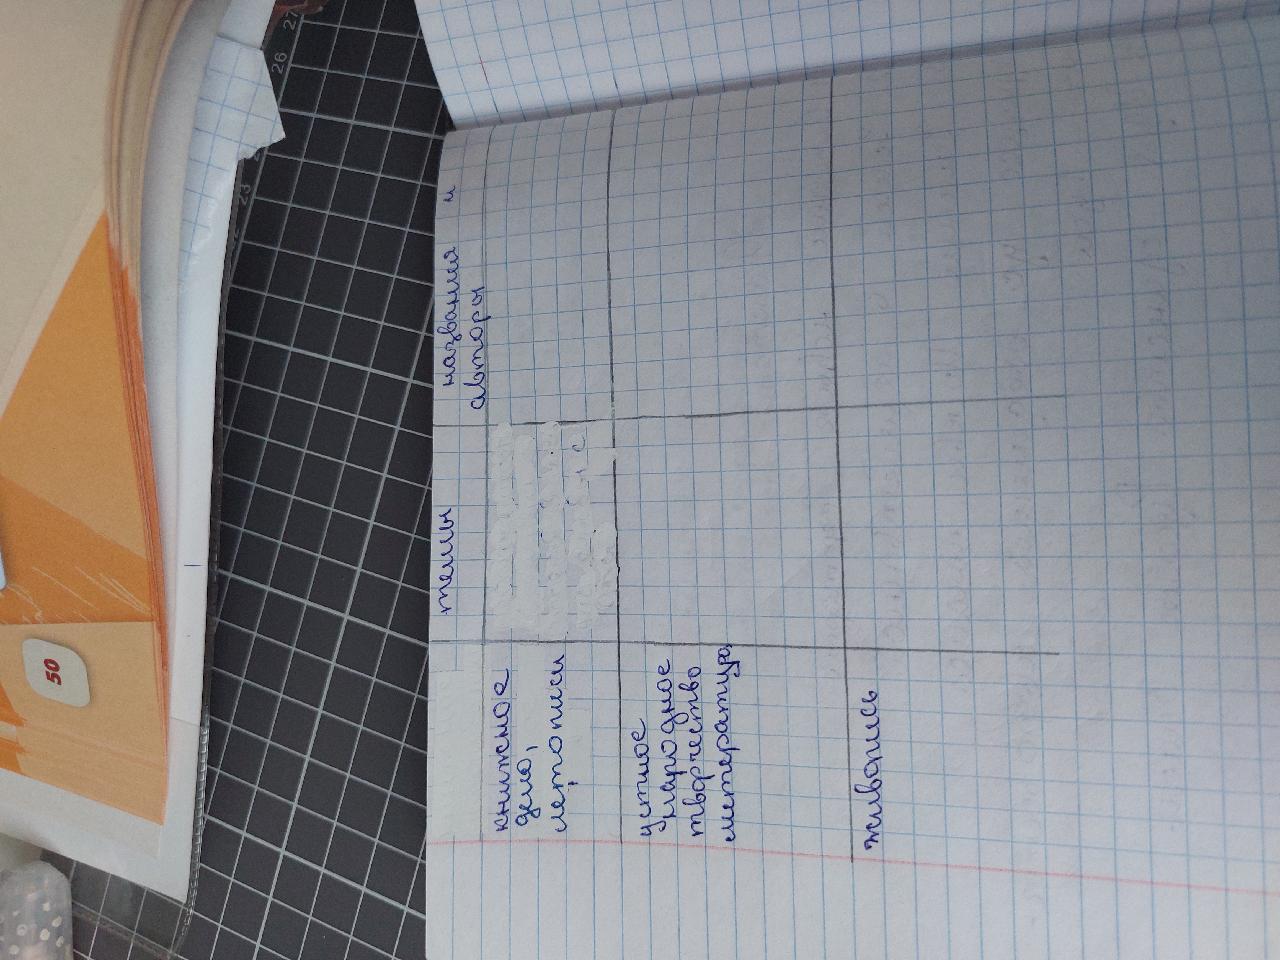 темы
названия и
авторы
книжное
дело,
летописи
устное
народное
творчество
литература
живопись
50
23
26
27